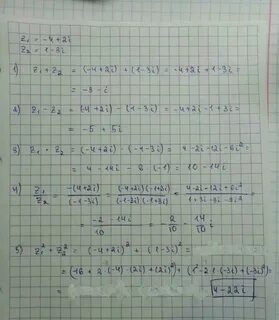 Z₁ = -4+2i
Z₂ = 1-3i
1) Z₁ + Z₂ = (-4+2i) + (1-3i) = -4+2i+1-3i =
= -3 - i
2) Z₁ - Z₂ = (-4+2i) - (1-3i) = -4+2i-1+3i =
= -5 + 5i
3) Z₁ · Z₂ = (-4+2i) · (-1-3i) = 4-2i-12i-6i² =
= 4 - 14i - 6 (-1) = 10 - 14i
4) Z₁/Z₂ = -(4+2i)/(-1-3i) = (-4+2i)(-1+3i)/(-1-3i)(-1+3i) = 4-2i-12i+6i²/1+3i-3i-9i² =
= -2-14i/10 = -2/10 - 14/10 i
5) Z₁² + Z₂² = (-4+2i)² + (1-3i)² =
= (16 + 2·(-4)·(2i)+(2i)²) + (1²-2·1·(-3i)+(-3i)²) =
4-22i